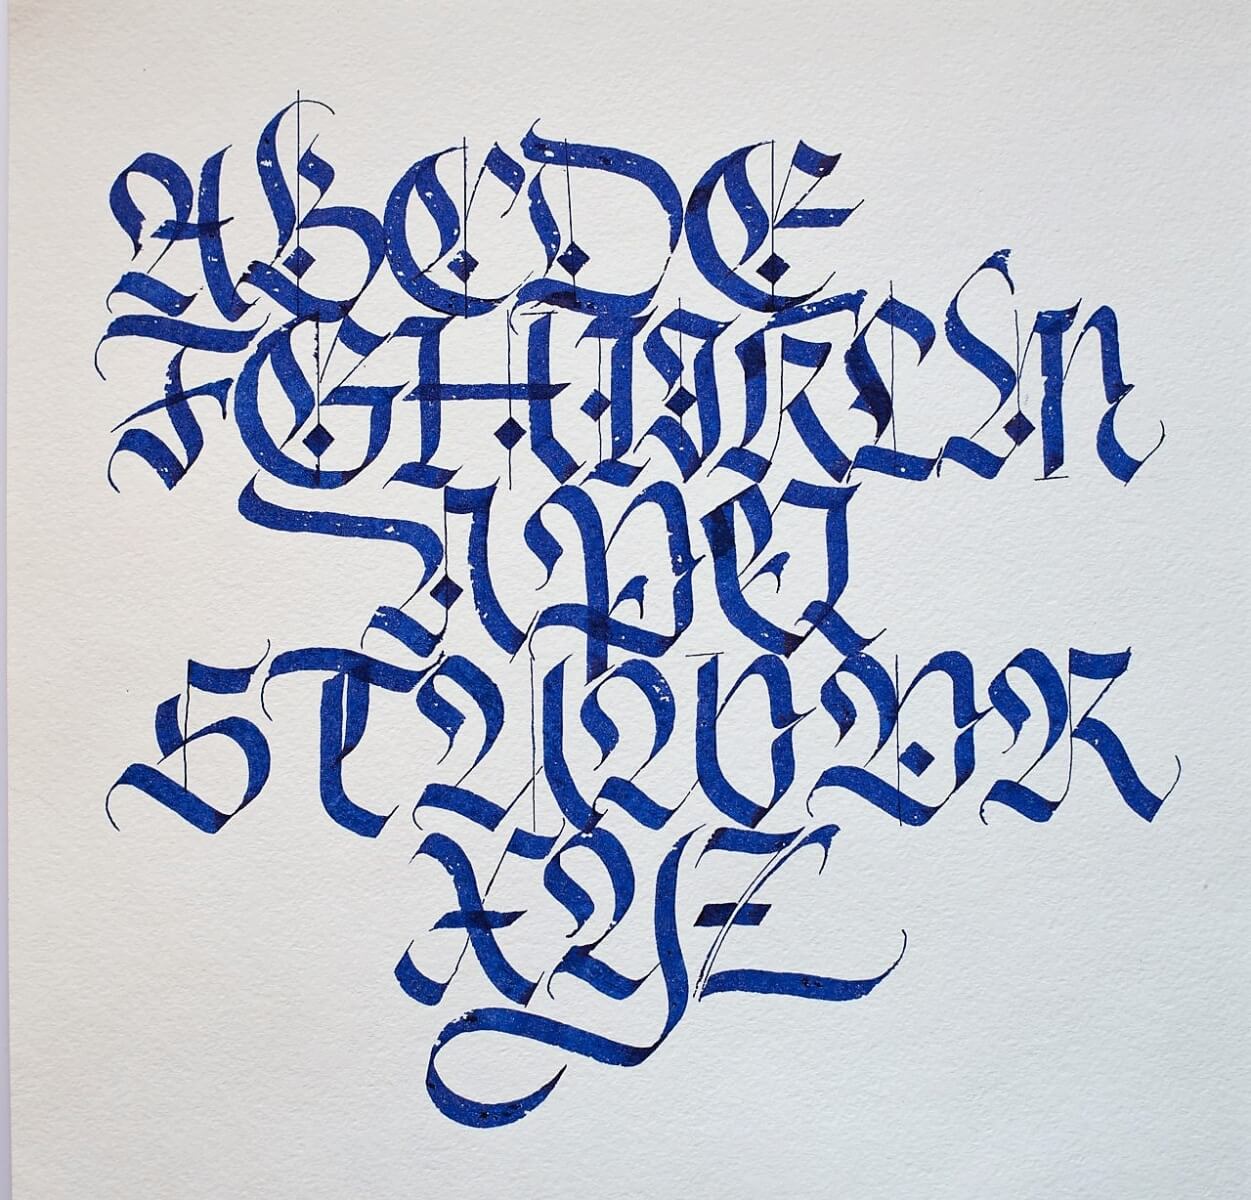 ABCDE
FGHIJKLM
NPQ
STUWVR
XYZ